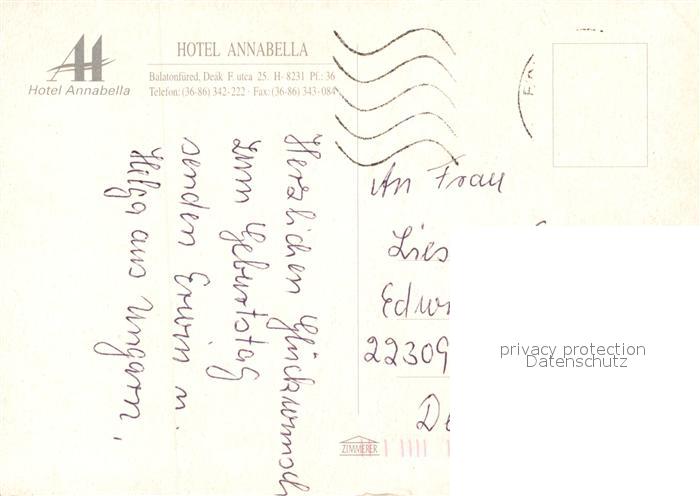 AH
Hotel Annabella
HOTEL ANNABELLA
Balatonfüred, Deák F. utca 25. H-8231 Pf.: 36
Telefon: (36-86) 342-222 · Fax: (36-86) 343-084
Herzlichen Glückwunsch
zum Geburtstag
senden Erwin u.
Hilga aus Ungarn.
An Frau
Lies
Edw
22309
De
ZIMMERER
privacy protection
Datenschutz